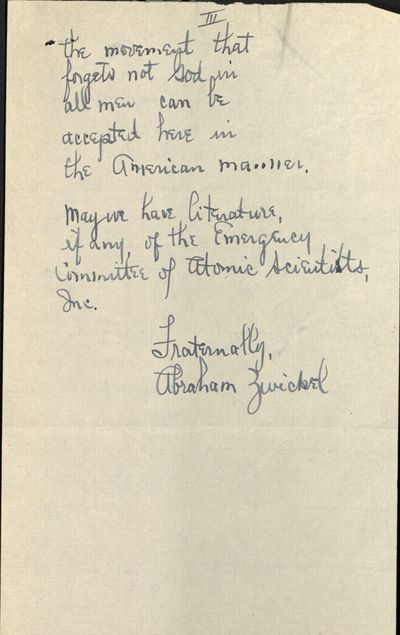 III
the movement that
forgets not God in
all men can be
accepted here in
the American manner.
May we have literature,
if any, of the Emergency
Committee of Atomic Scientists,
Inc.
Fraternally,
Abraham Zwickel